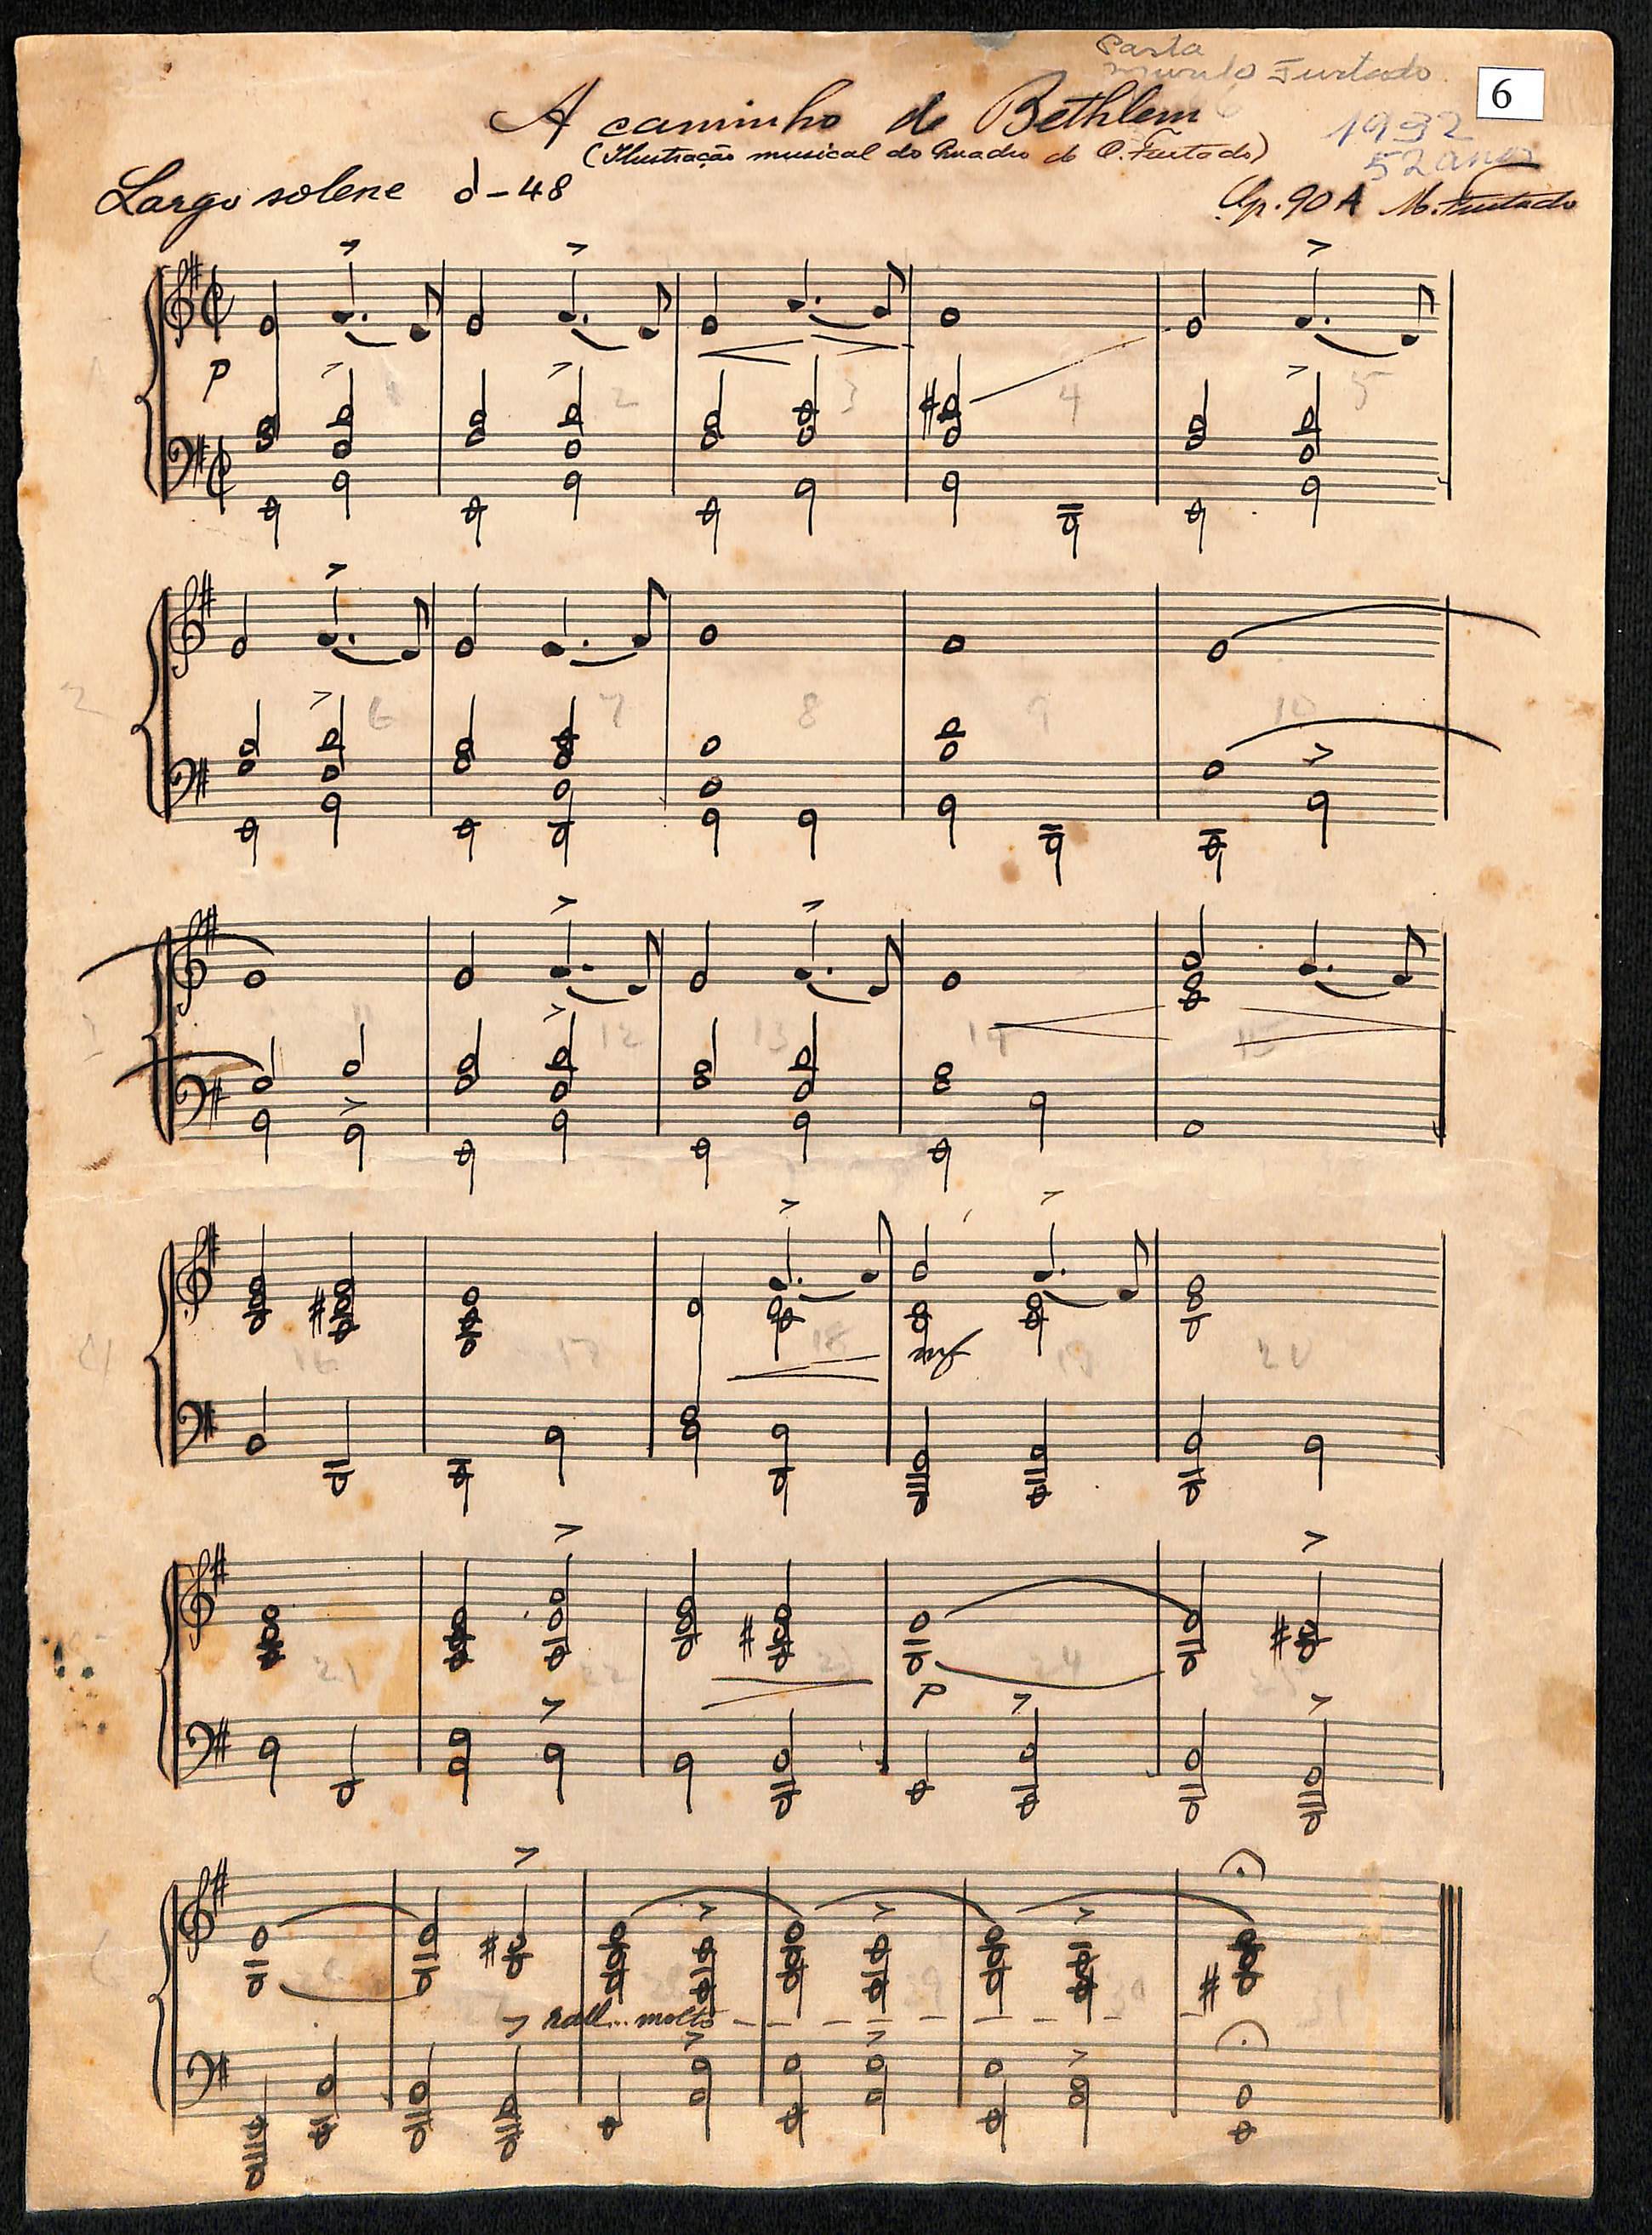 Pasta
Murilo Furtado
6
A caminho de Bethlem
1932
(Ilustração musical do Quadro de O. Furtado)
52 anos
Largo solene 𝅗𝅥 - 48
Op. 90 A M. Furtado
p
1 2 3 4 5
2
6 7 8 9 10
3
11 12 13 14 15
4
mf
16 17 18 19 20
21 22 23 24 25
p
6
rall... molto
29 30 31